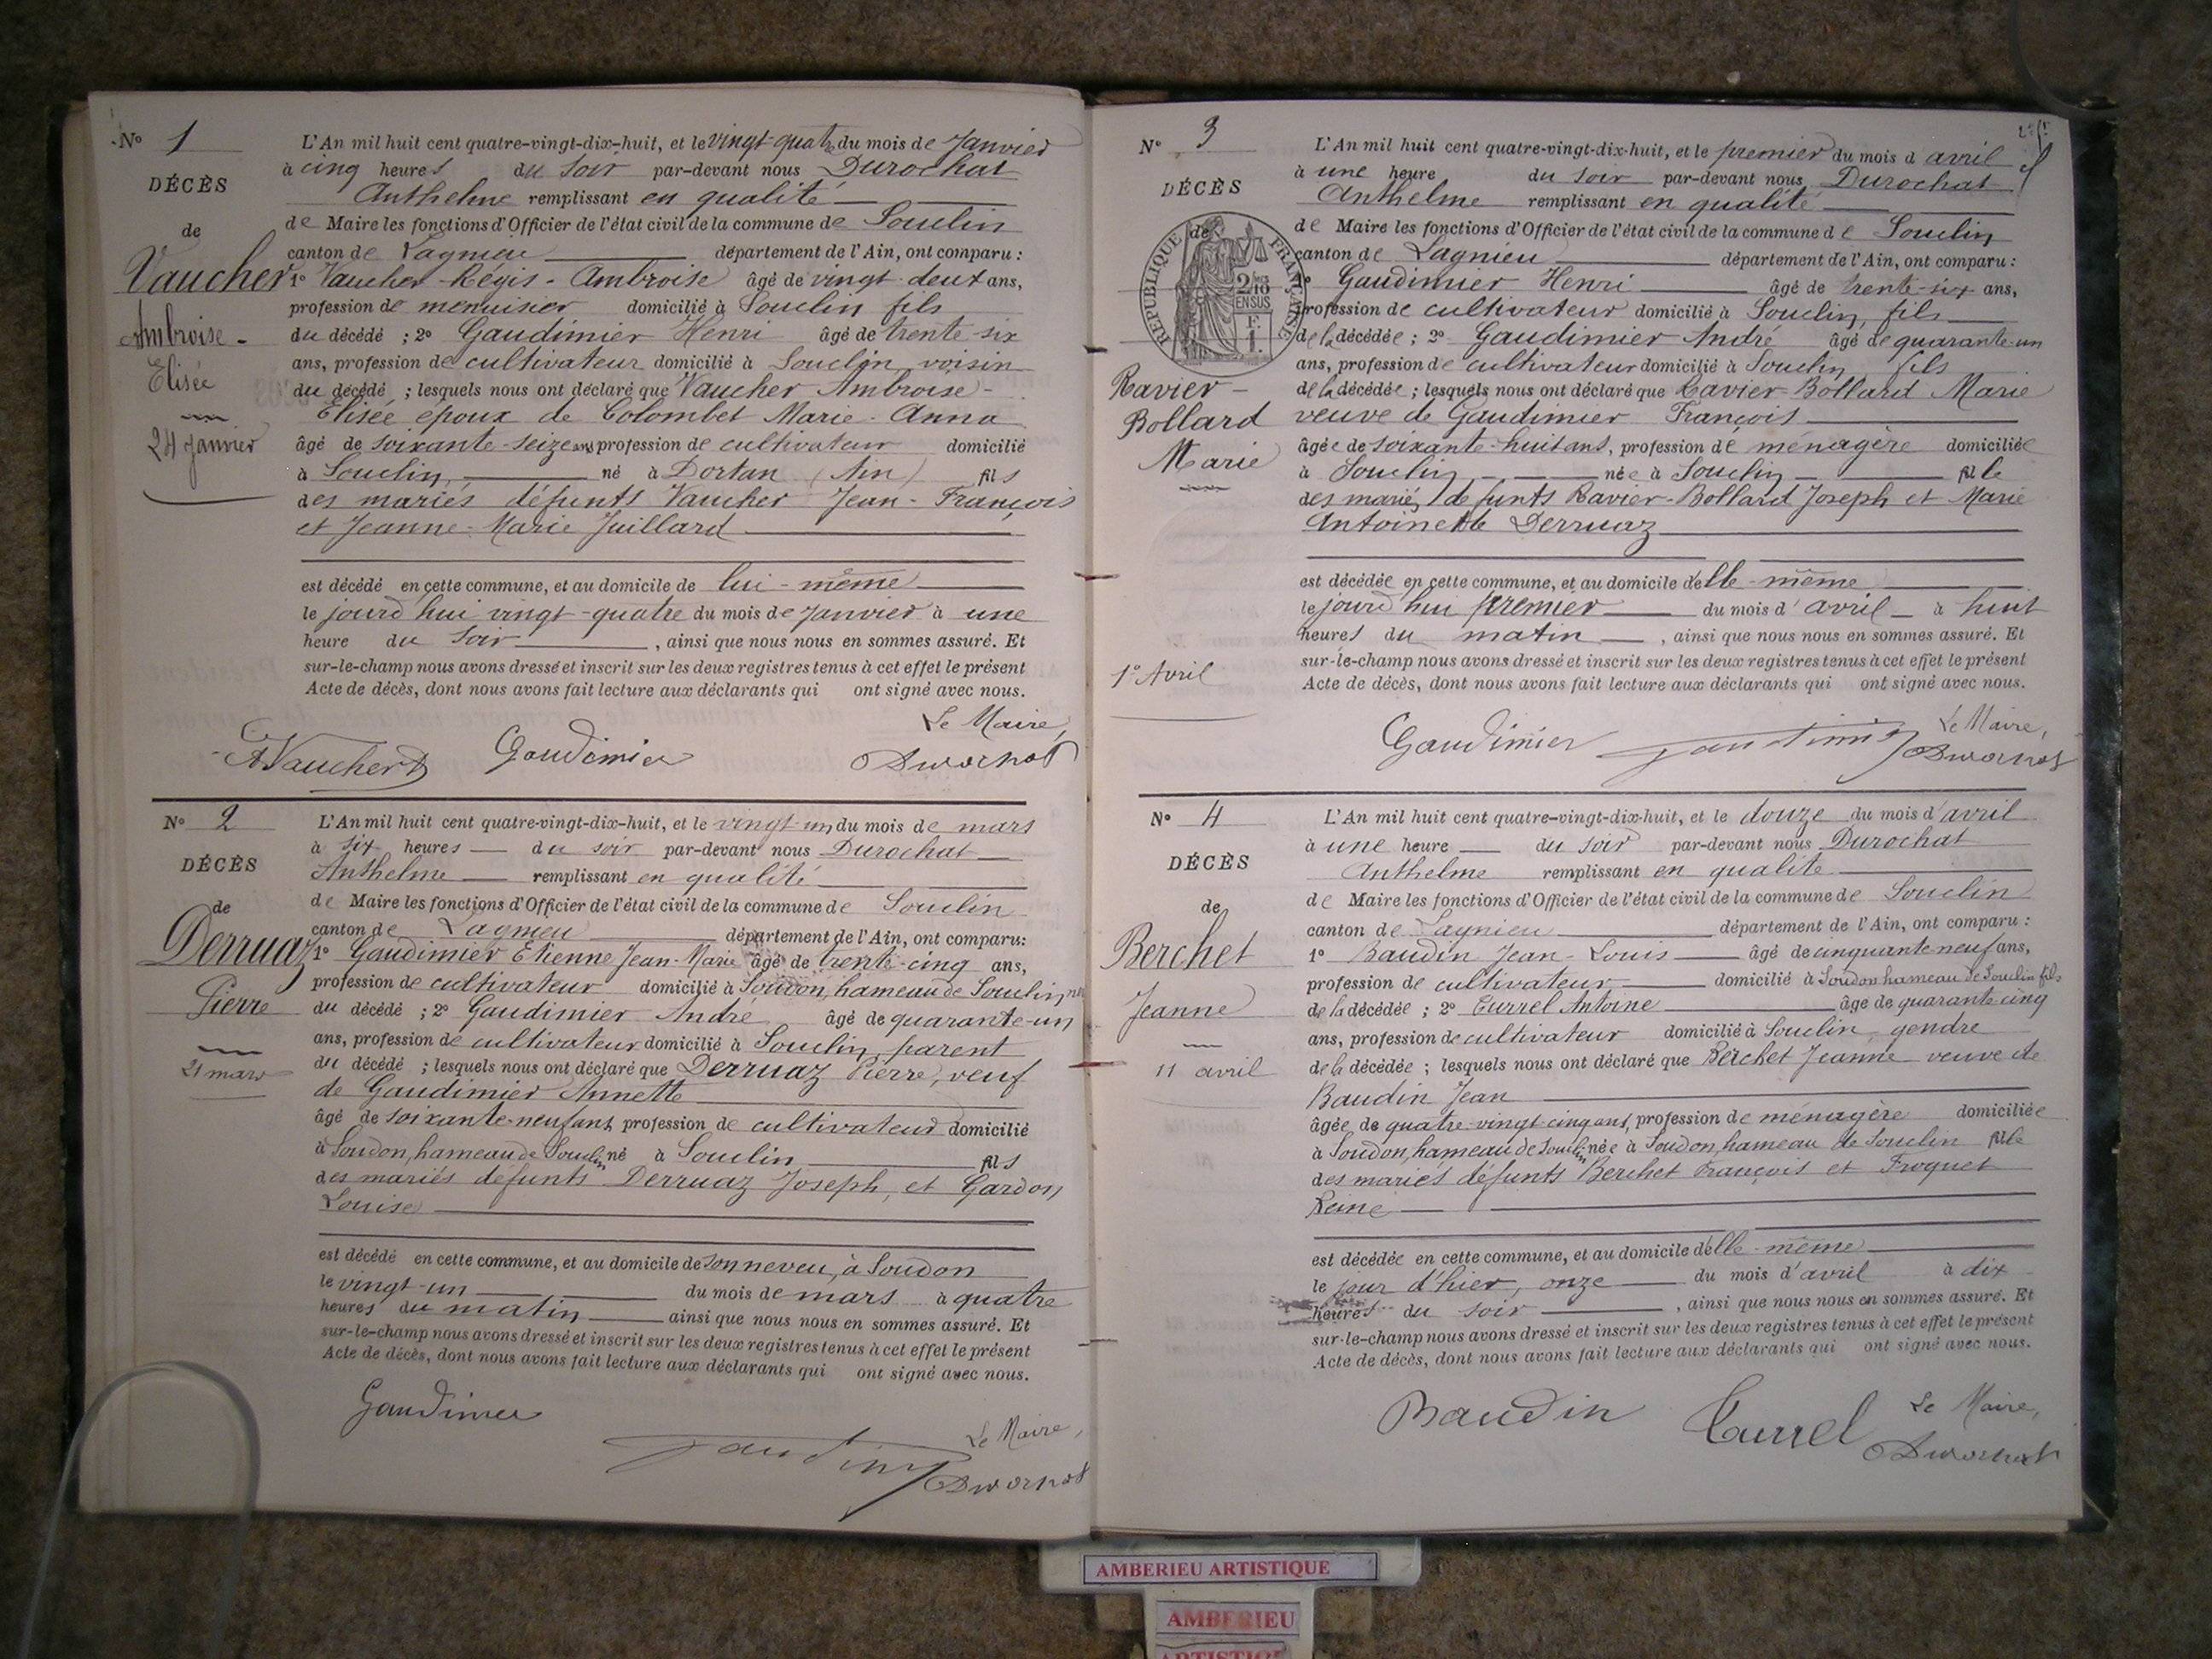 N° 1
DÉCÈS
de
Vaucher
Ambroise-
Elisée
24 janvier
L'An mil huit cent quatre-vingt-dix-huit, et le vingt-quatre du mois de Janvier
à cinq heures du soir par-devant nous Durochat
Anthelme remplissant en qualité
de Maire les fonctions d'Officier de l'état civil de la commune de Souclin
canton de Lagnieu département de l'Ain, ont comparu :
1° Vaucher Régis-Ambroise âgé de vingt-deux ans,
profession de menuisier domicilié à Souclin fils
du décédé ; 2° Gaudimier Henri âgé de trente-six
ans, profession de cultivateur domicilié à Souclin voisin
du décédé ; lesquels nous ont déclaré que Vaucher Ambroise-
Elisée epoux de Colombet Marie-Anna
âgé de soixante-seize ans profession de cultivateur domicilié
à Souclin, né à Dortan (Ain) fils
des mariés défunts Vaucher Jean-François
et Jeanne-Marie Juillard
est décédé en cette commune, et au domicile de lui-même
le jourd'hui vingt-quatre du mois de Janvier à une
heure du soir, ainsi que nous nous en sommes assuré. Et
sur-le-champ nous avons dressé et inscrit sur les deux registres tenus à cet effet le présent
Acte de décès, dont nous avons fait lecture aux déclarants qui ont signé avec nous.
Le Maire,
A Vaucher Gaudimier Durochat
N° 2
DÉCÈS
de
Derruaz
Pierre
21 mars
L'An mil huit cent quatre-vingt-dix-huit, et le vingt-un du mois de mars
à six heures du soir par-devant nous Durochat
Anthelme remplissant en qualité
de Maire les fonctions d'Officier de l'état civil de la commune de Souclin
canton de Lagnieu département de l'Ain, ont comparu:
1° Gaudimier Etienne Jean-Marie âgé de trente-cinq ans,
profession de cultivateur domicilié à Soudon, hameau de Souclin,
du décédé ; 2° Gaudimier André âgé de quarante-un
ans, profession de cultivateur domicilié à Souclin, parent
du décédé ; lesquels nous ont déclaré que Derruaz Pierre, veuf
de Gaudimier Annette
âgé de soixante-neuf ans profession de cultivateur domicilié
à Soudon, hameau de Souclin né à Souclin fils
des mariés défunts Derruaz Joseph, et Gardon
Louise
est décédé en cette commune, et au domicile de son neveu, à Soudon
le vingt-un du mois de mars à quatre
heures du matin ainsi que nous nous en sommes assuré. Et
sur-le-champ nous avons dressé et inscrit sur les deux registres tenus à cet effet le présent
Acte de décès, dont nous avons fait lecture aux déclarants qui ont signé avec nous.
Gaudimier
Le Maire,
Gaudimier Durochat
N° 3
DÉCÈS
de
RÉPUBLIQUE FRANÇAISE
2/10 EN SUS
Ravier-
Bollard
Marie
1° Avril
L'An mil huit cent quatre-vingt-dix-huit, et le premier du mois d avril
à une heure du soir par-devant nous Durochat
Anthelme remplissant en qualité
de Maire les fonctions d'Officier de l'état civil de la commune de Souclin
canton de Lagnieu département de l'Ain, ont comparu :
1° Gaudimier Henri âgé de trente-six ans,
profession de cultivateur domicilié à Souclin, fils
de la décédée ; 2° Gaudimier André âgé de quarante-un
ans, profession de cultivateur domicilié à Souclin, fils
de la décédée ; lesquels nous ont déclaré que Ravier-Bollard Marie
veuve de Gaudimier François
âgée de soixante-huit ans, profession de ménagère domiciliée
à Souclin née à Souclin fille
des mariés défunts Ravier-Bollard Joseph et Marie
Antoinette Derruaz
est décédée en cette commune, et au domicile d'elle-même
le jourd'hui premier du mois d'avril à huit
heures du matin, ainsi que nous nous en sommes assuré. Et
sur-le-champ nous avons dressé et inscrit sur les deux registres tenus à cet effet le présent
Acte de décès, dont nous avons fait lecture aux déclarants qui ont signé avec nous.
Le Maire,
Gaudimier Gaudimier Durochat
N° 4
DÉCÈS
de
Berchet
Jeanne
11 avril
L'An mil huit cent quatre-vingt-dix-huit, et le douze du mois d'avril
à une heure du soir par-devant nous Durochat
Anthelme remplissant en qualité
de Maire les fonctions d'Officier de l'état civil de la commune de Souclin
canton de Lagnieu département de l'Ain, ont comparu :
1° Baudin Jean-Louis âgé de cinquante-neuf ans,
profession de cultivateur domicilié à Soudon hameau de Souclin fils
de la décédée ; 2° Currel Antoine âgé de quarante cinq
ans, profession de cultivateur domicilié à Souclin, gendre
de la décédée ; lesquels nous ont déclaré que Berchet Jeanne veuve de
Baudin Jean
âgée de quatre-vingt-cinq ans, profession de ménagère domiciliée
à Soudon, hameau de Souclin née à Soudon, hameau de Souclin fille
des mariés défunts Berchet François et Froquet
Reine
est décédée en cette commune, et au domicile d'elle-même
le jour d'hier, onze du mois d'avril à dix
heures du soir, ainsi que nous nous en sommes assuré. Et
sur-le-champ nous avons dressé et inscrit sur les deux registres tenus à cet effet le présent
Acte de décès, dont nous avons fait lecture aux déclarants qui ont signé avec nous.
Baudin Currel Le Maire,
Durochat
AMBERIEU ARTISTIQUE
AMBERIEU
ARTISTIQUE